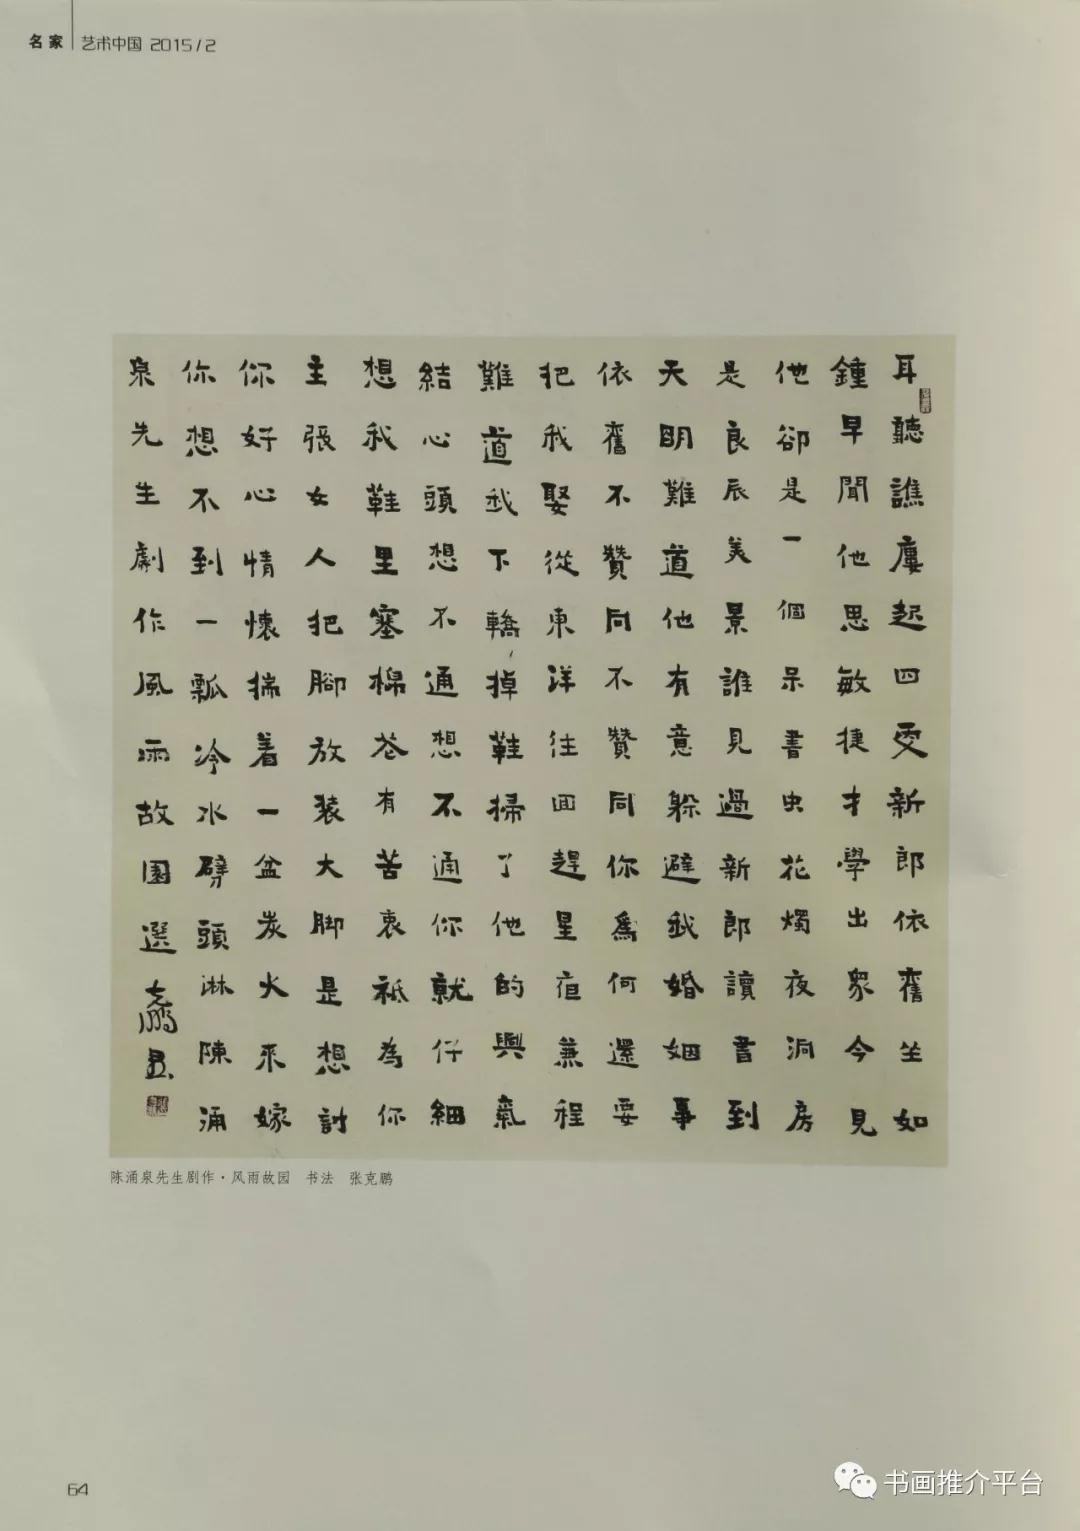 名家 艺术中国 2015/2
耳聽譙廔起四更新郎依舊坐如
鍾早聞他思敏捷才學出衆今見
他卻是一個呆書虫花燭夜洞房
是良辰美景誰見過新郎讀書到
天明難道他有意躲避我婚姻事
依舊不贊同不贊同你爲何還要
把我娶從東洋往回趕星宿兼程
難道我下轎掉鞋掃了他的興氣
結心頭想不通想不通你就仔細
想我鞋里塞棉花有苦衷祗為你
主張女人把腳放裝大脚是想討
你好心情懷揣着一盆炭火來嫁
你想不到一瓢冷水劈頭淋陳涌
泉先生劇作風雨故園選克鵬書
陈涌泉先生剧作·风雨故园 书法 张克鹏
64
书画推介平台